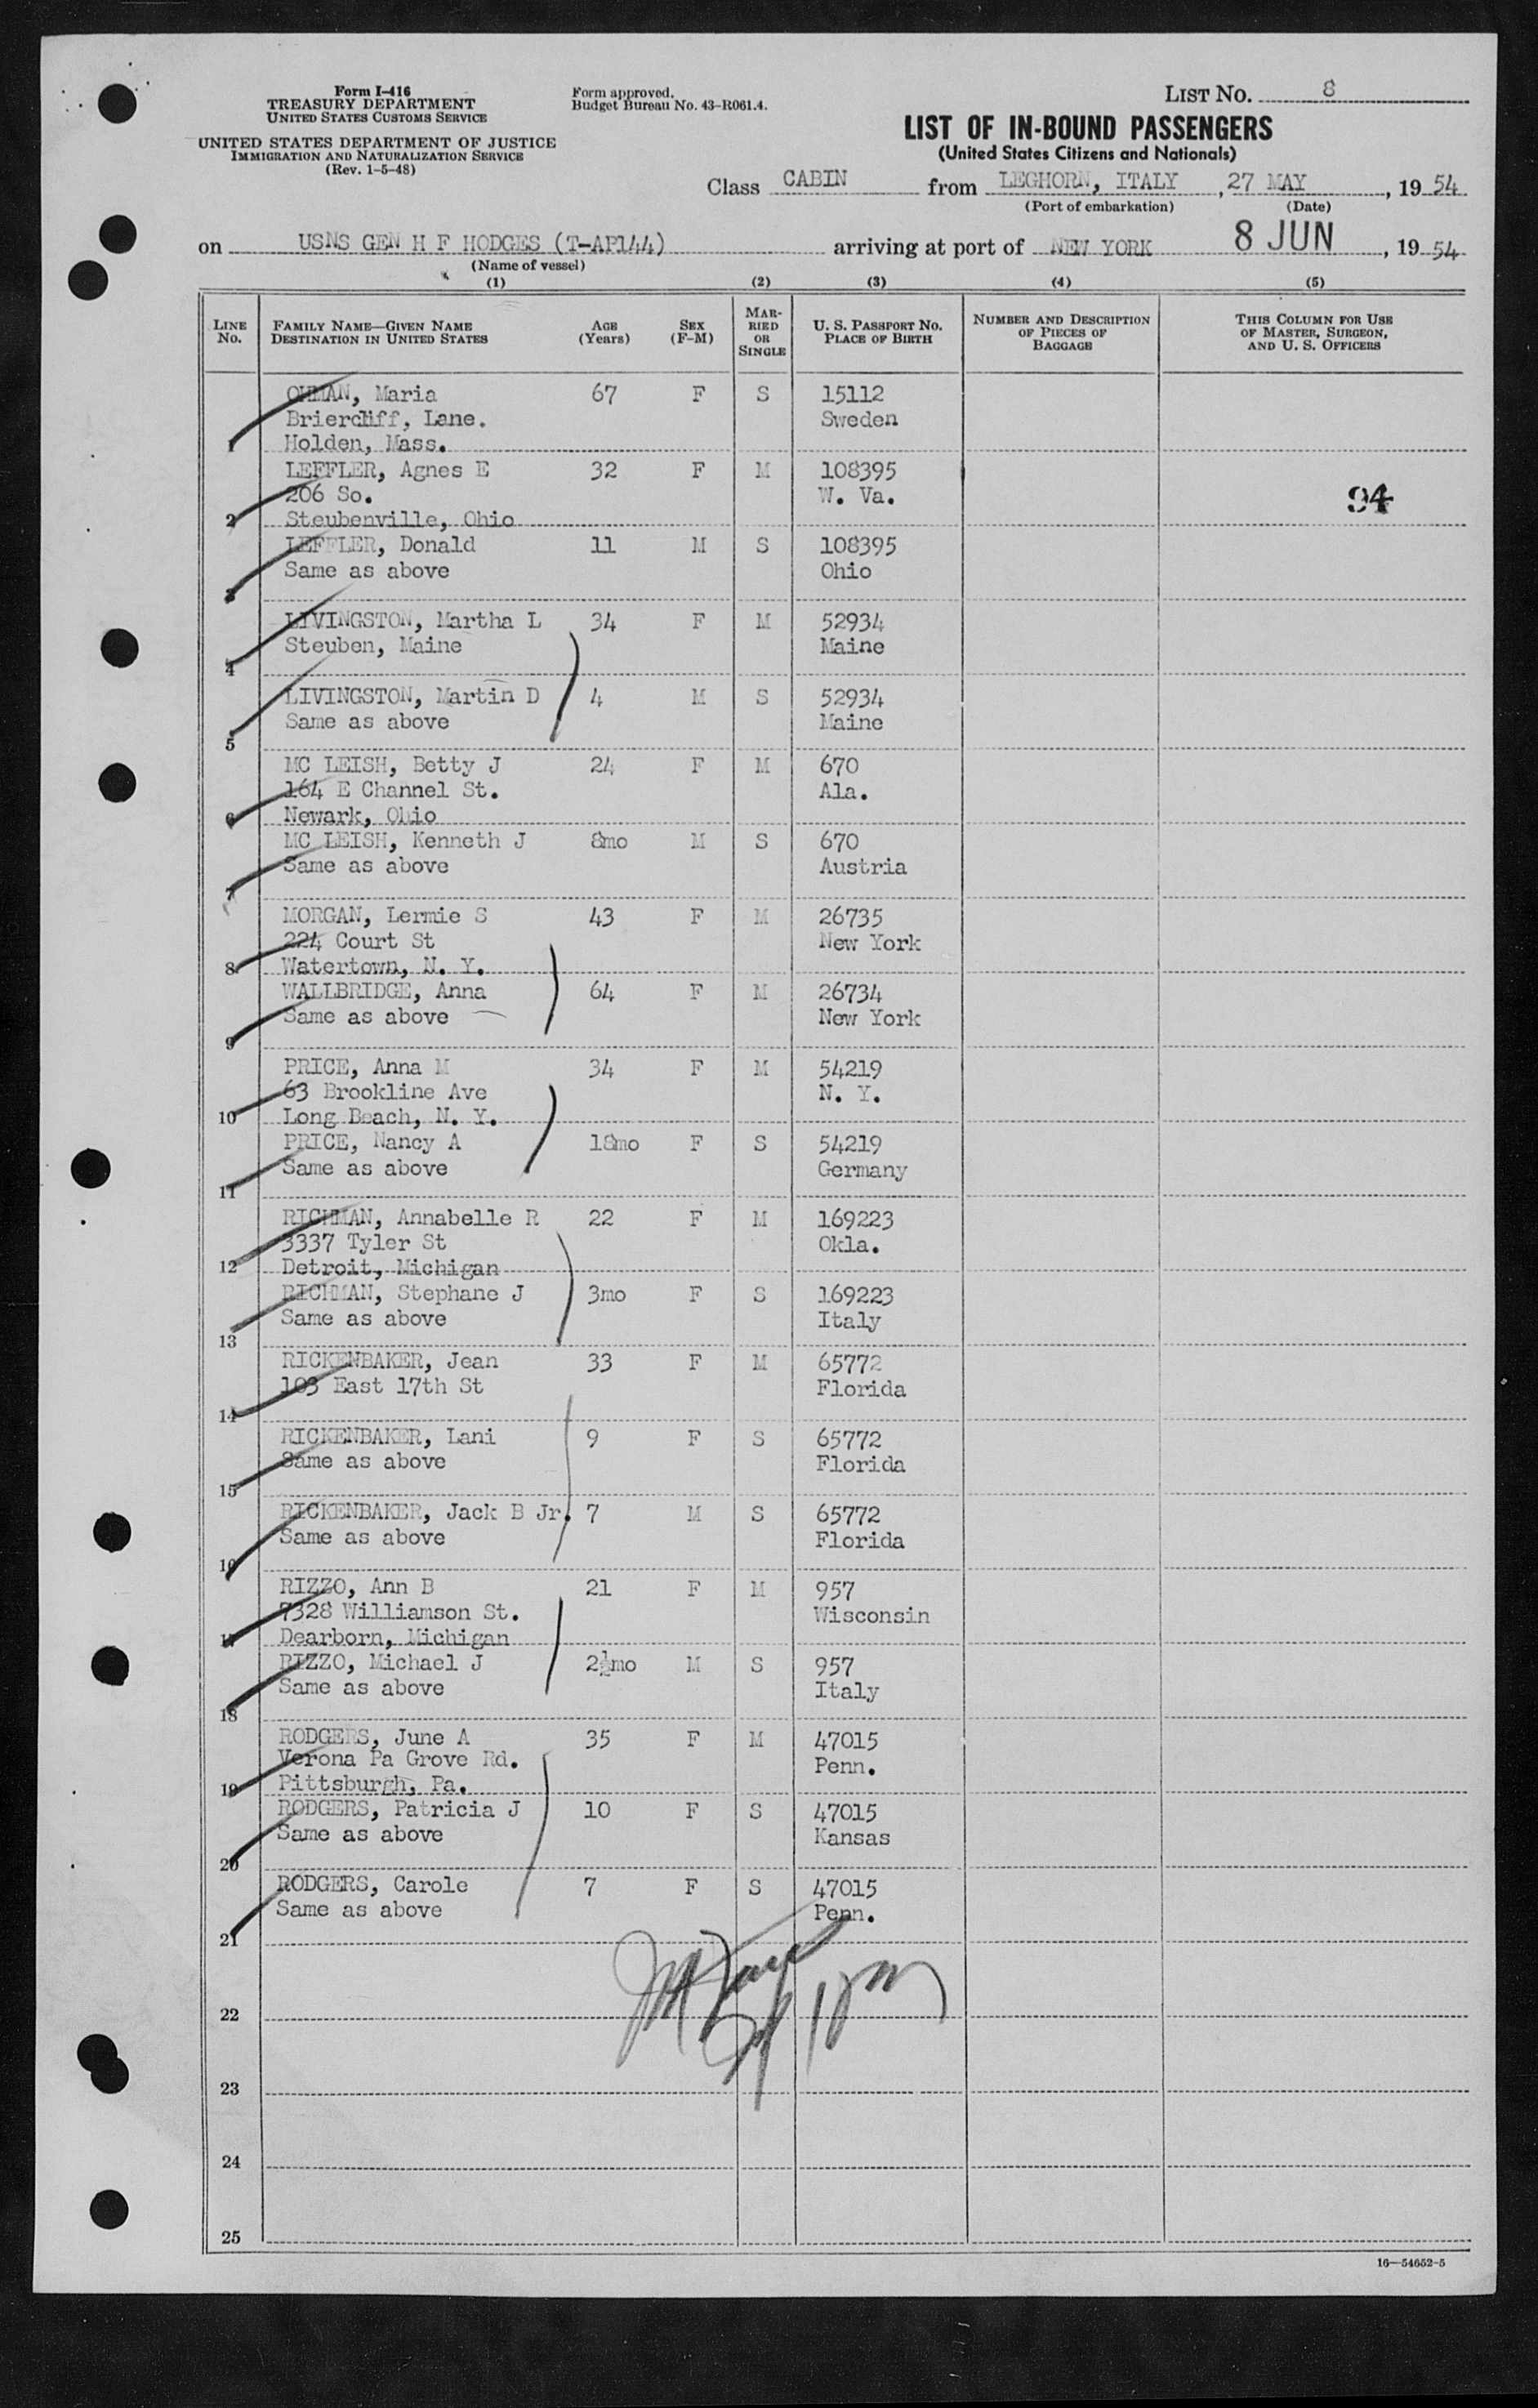 Form I-416
TREASURY DEPARTMENT
UNITED STATES CUSTOMS SERVICE
UNITED STATES DEPARTMENT OF JUSTICE
IMMIGRATION AND NATURALIZATION SERVICE
(Rev. 1-5-48)
Form approved.
Budget Bureau No. 43-R061.4.
LIST NO. 8
LIST OF IN-BOUND PASSENGERS
(United States Citizens and Nationals)
Class CABIN from LEGHORN, ITALY, 27 MAY, 1954
(Port of embarkation) (Date)
on USNS GEN H F HODGES (T-AP144) arriving at port of NEW YORK 8 JUN, 1954
(Name of vessel)
(1) (2) (3) (4) (5)
LINE No. FAMILY NAME—GIVEN NAME DESTINATION IN UNITED STATES AGE (Years) SEX (F-M) MARRIED OR SINGLE U. S. PASSPORT NO. PLACE OF BIRTH NUMBER AND DESCRIPTION OF PIECES OF BAGGAGE THIS COLUMN FOR USE OF MASTER, SURGEON, AND U. S. OFFICERS
OHMAN, Maria 67 F S 15112
Briercliff, Lane. Sweden
1 Holden, Mass.
LEFFLER, Agnes E 32 F M 108395
206 So. W. Va. 94
2 Steubenville, Ohio
LEFFLER, Donald 11 M S 108395
Same as above Ohio
3
LIVINGSTON, Martha L 34 F M 52934
Steuben, Maine Maine
4
LIVINGSTON, Martin D 4 M S 52934
Same as above Maine
5
MC LEISH, Betty J 24 F M 670
164 E Channel St. Ala.
6 Newark, Ohio
MC LEISH, Kenneth J 8mo M S 670
Same as above Austria
7
MORGAN, Lermie S 43 F M 26735
224 Court St New York
8 Watertown, N. Y.
WALLBRIDGE, Anna 64 F M 26734
Same as above New York
9
PRICE, Anna M 34 F M 54219
63 Brookline Ave N. Y.
10 Long Beach, N. Y.
PRICE, Nancy A 18mo F S 54219
Same as above Germany
11
RICHMAN, Annabelle R 22 F M 169223
3337 Tyler St Okla.
12 Detroit, Michigan
RICHMAN, Stephane J 3mo F S 169223
Same as above Italy
13
RICKENBAKER, Jean 33 F M 65772
103 East 17th St Florida
14
RICKENBAKER, Lani 9 F S 65772
Same as above Florida
15
RICKENBAKER, Jack B Jr. 7 M S 65772
Same as above Florida
16
RIZZO, Ann B 21 F M 957
7328 Williamson St. Wisconsin
17 Dearborn, Michigan
RIZZO, Michael J 2½mo M S 957
Same as above Italy
18
RODGERS, June A 35 F M 47015
Verona Pa Grove Rd. Penn.
19 Pittsburgh, Pa.
RODGERS, Patricia J 10 F S 47015
Same as above Kansas
20
RODGERS, Carole 7 F S 47015
Same as above Penn.
21
22
23
24
25
16—54652-5